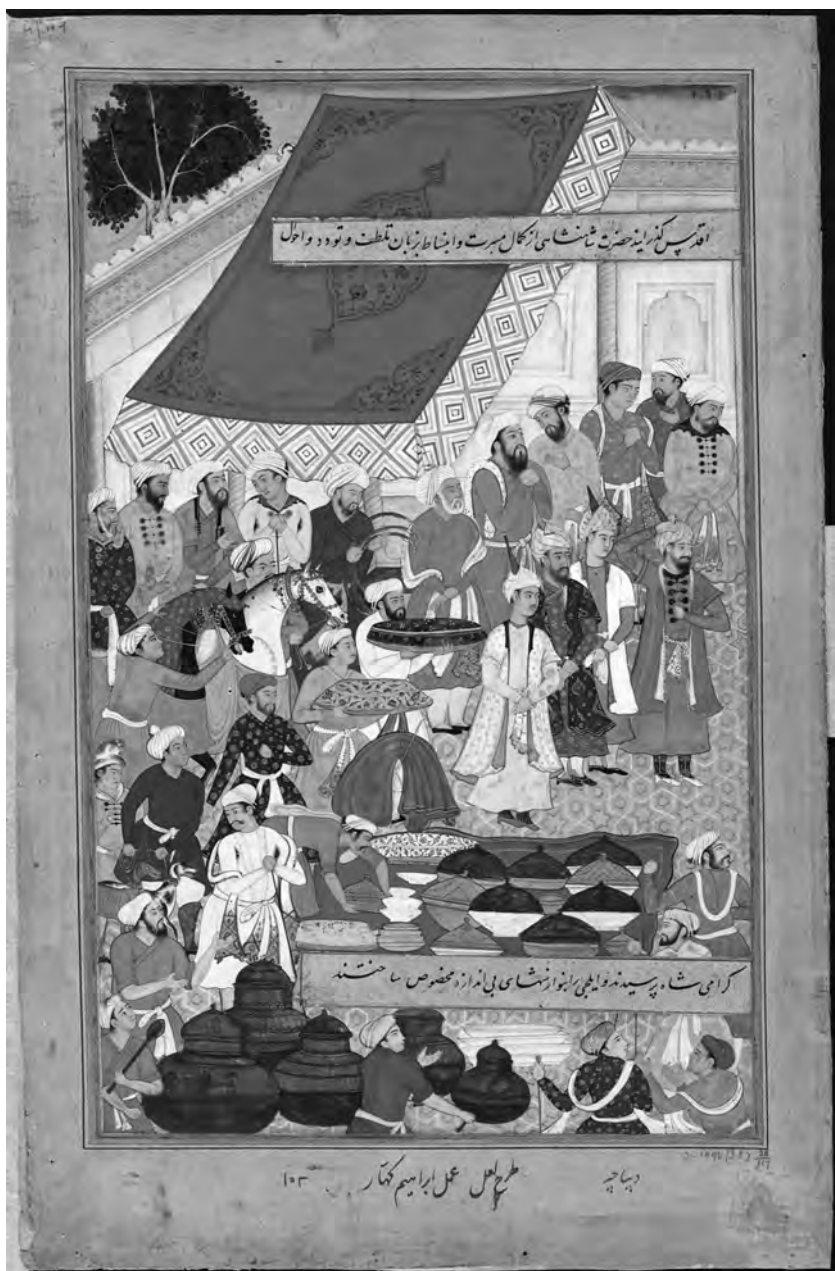 اقدس گذرانید حضرت شاهنشاهی از کمال مسرت و انبساط بزبان تلطف و تودد و احوال
گرامی شاه پرسیدند و ایلچی را بنوازشهای بی اندازه مخصوص ساختند
دیباچه
طرح لعل عمل ابراهیم کهار ۱۰۳